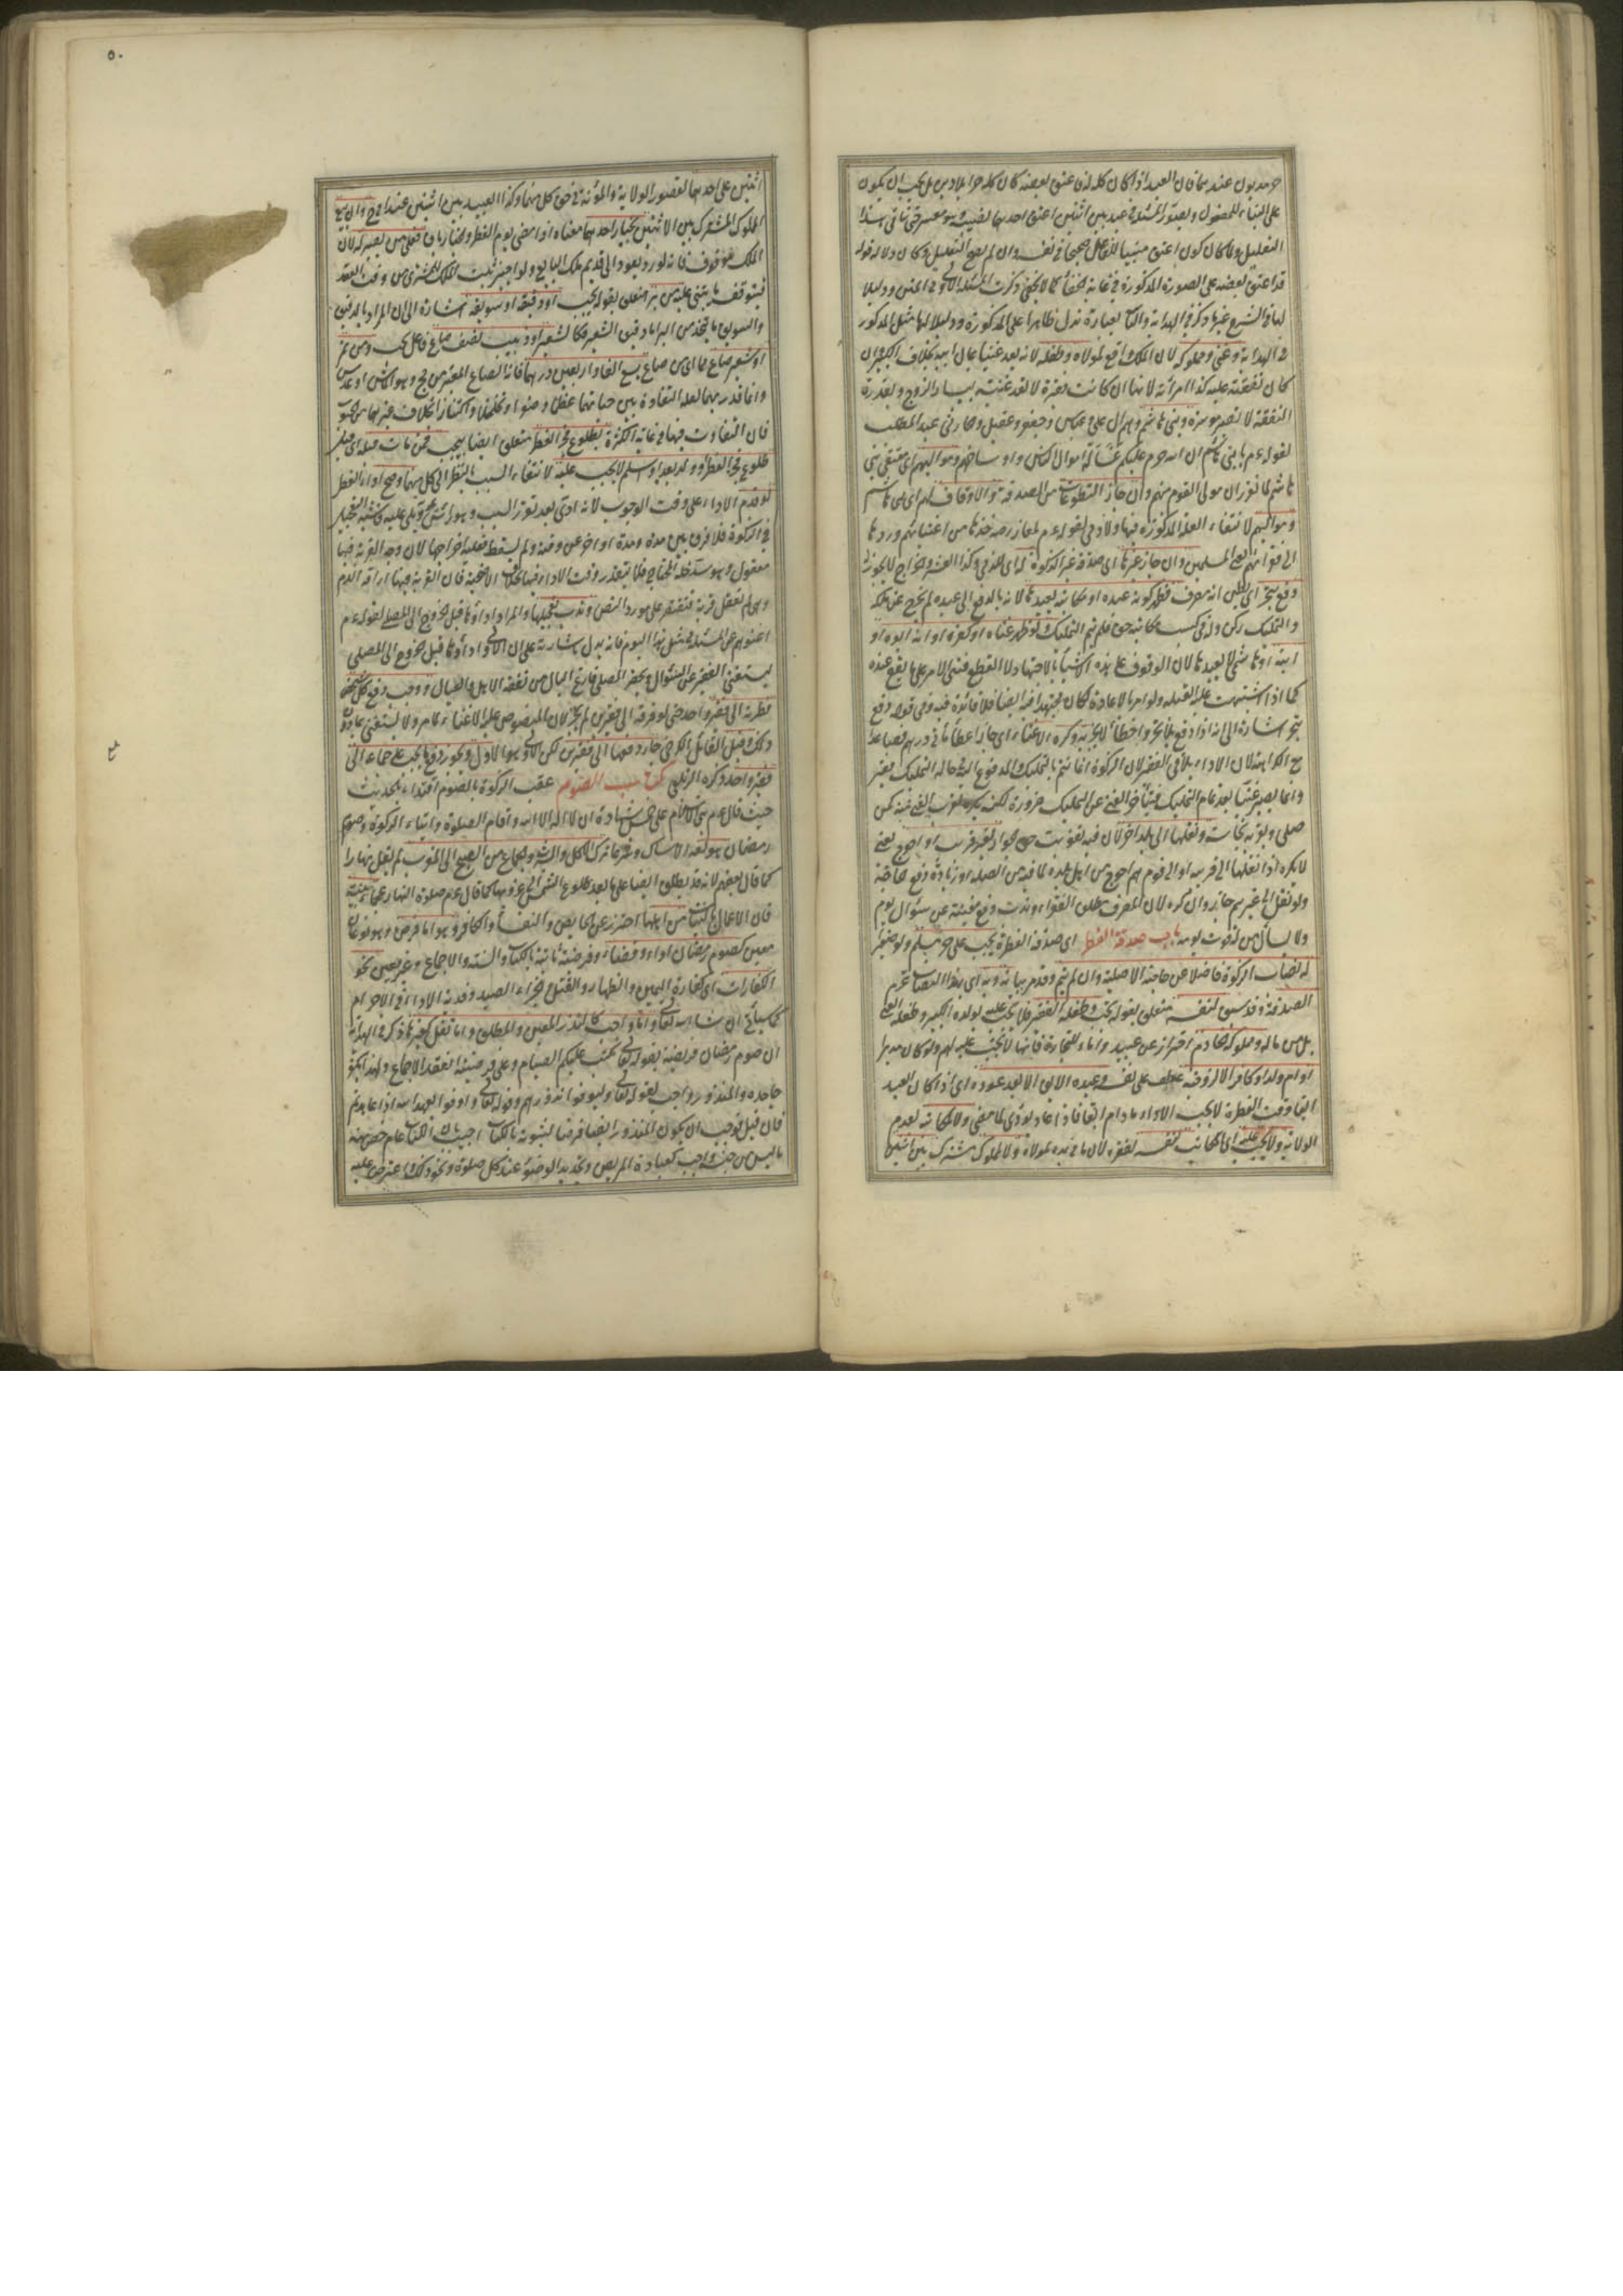 حر مديون عندهما فان العبد اذا كان كله له فاعتق بعضه كان كله حرا بلا دين بل يجب ان يكون
على البناء للمفعول ويصور المسئلة في عبد بين اثنين اعتق احدهما نصيبه وهو معسر حتى يتأتى هذا
التعليل ولما كان كون اعتق مبنيا للفاعل صحيحا في نفسه وان لم يصح التعليل وكان دلالة قوله
قد اعتق بعضه على الصورة المذكورة في غاية الخفاء كما لا يخفى ذكرت المسئلة الاولى في المتن ودليلا
لها في الشرح غير ما ذكر في الهداية والثانية بعبارة تدل ظاهرا على المذكورة ودليلا لها مثل المذكور
في الهداية وغني ومملوكه لان الملك واقع لمولاه وطفله لانه يعد غنيا بمال ابيه بخلاف الكبير وان
كان نفقته عليه كذا امرأته لانها ان كانت فقيرة لا تعد غنية بيسار الزوج وبقدرة
النفقة لا تصير موسرة وبني هاشم وهم آل علي وعباس وجعفر وعقيل وحارث بن عبد المطلب
لقوله عم يا بني هاشم ان الله حرم عليكم غسالة اموال الناس واوساخهم ومواليهم اي معتقي بني
هاشم لما تقرر ان مولى القوم منهم وان جاز التطوعات من الصدقة والاوقاف لهم اي بني هاشم
ومواليهم لانتفاء العلة المذكورة فيها ولا ذمي لقوله عم لمعاذ رض خذها من اغنيائهم وردها
الى فقرائهم يعني المسلمين وان جاز غيرها اي صدقة غير الزكوة له اي للذمي وكذا العشر والخراج لا يجوز له
دفع بتحر اي بظن انه مصرف فظهر كونه عبده او مكاتبه يعيدها لانه بالدفع الى عبده لم يخرج عن ملكه
والتمليك ركن وله في كسب مكاتبه حق فلم يتم التمليك ولو ظهر غناه او كفره او انه ابوه او
ابنه او هاشمي لا يعيدها لان الوقوف على هذه الاشياء بالاجتهاد لا القطع فيبني الامر على ما يقع عنده
كما اذا اشتبهت عليه القبلة ولو امر بالاعادة لكان مجتهدا فيه ايضا فلا فائدة فيه وفي قوله دفع
بتحر اشارة الى انه اذا دفع بلا تحر واخطأ لا يجزيه وكره الاغناء اي جاز اعطاء مائتي درهم فصاعدا
مع الكراهة لان الاداء يلاقي الفقر لان الزكوة انما تتم بالتمليك والمدفوع اليه في حالة التمليك فقير
وانما يصير غنيا بعد تمام التمليك فيتأخر الغنى عن التمليك ضرورة لكنه يكره لقرب الغنى منه كمن
صلى وبقربه نجاسة ونقلها الى بلد آخر لان فيه تفويت حق الجوار لغير قريب او احوج يعني
لا يكره اذا نقلها الى قريبه او الى قوم هم احوج من اهل بلده لما فيه من الصلة او زيادة دفع حاجة
ولو نقل الى غيرهم جاز وان كره لان المصرف مطلق الفقراء وندب دفع مغنيه عن سؤال يوم
ولا يسأل من له قوت يومه باب صدقة الفطر اي صدقة الفطرة يجب على حر مسلم ولو صغيرا
له نصاب الزكوة فاضلا عن حاجته الاصلية وان لم ينم وقد مر بيانه وبه اي بهذا النصاب تحرم
الصدقة وقد سبق لنفسه متعلق بقوله تجب وطفله الفقير فلا تجب عليه لولده الكبير وطفله الغني
بل من ماله ومملوكه لخادم احتراز عن عبيد واماء للتجارة فانها لا تجب عليه لهم ولو كان مدبرا
او ام ولد او كافرا لا لزوجته عطف على لنفسه وعبده الآبق الا بعد عوده اي اذا كان العبد
آبقا وقت الفطرة لا يجب الاداء ما دام آبقا فاذا عاد يؤدي لما مضى ولا لمكاتبه لعدم
الولاية ولا يجب عليه اي المكاتب لنفسه لفقره لان ما في يده لمولاه ولا لمملوك مشترك بين اثنين
٥٠
اثنين على احدهما لقصور الولاية والمؤنة في حق كل منهما وكذا العبيد بين اثنين عند ابي ح وان بيع
المملوك المشترك بين الاثنين بخيار احدهما معناه اذا مضى يوم الفطر والخيار باق فعلى من يصير له لان
الملك موقوف فانه لو رد يعود الى قديم ملك البايع ولو اجيز يثبت الملك للمشتري من وقت العقد
فيتوقف ما يبتني عليه من بر متعلق بقوله يجب او دقيقه او سويقه اشارة الى ان المراد بالدقيق
والسويق ما يتخذ من البر اما دقيق الشعير فكالشعير او زبيب نصف صاع فاعل يجب ومن تمر
او شعير صاع مما اي من صاع يسع الفا واربعين درهما فان الصاع المعتبر من مج وهو الماش او عدس
وانما قدر بهما لقلة التفاوت بين حباتهما عظما وصغرا وتخلخلا واكتنازا بخلاف غيرهما من الحبوب
فان التفاوت فيها في غاية الكثرة بطلوع فجر الفطر متعلق ايضا بيجب فمن مات قبله اي قبل
طلوع فجر الفطر او ولد بعده او اسلم لا يجب عليه لانتفاء السبب بالنظر الى كل منهما وصح اداء الفطر
لو قدم الاداء على وقت الوجوب لانه ادى بعد تقرر السبب وهو رأس يمونه ويلي عليه فاشبه التعجيل
في الزكوة فلا فرق بين مدة ومدة او اخر عن وقته ولم يسقط فعليه اخراجها لان وجه القربة فيها
معقول وهو سد خلة المحتاج فلا يتقدر وقت الاداء فيها بخلاف الاضحية فان القربة فيها اراقة الدم
وهي لم تعقل قربة فتقتصر على مورد النص وندب تعجيلها والمراد اداؤها قبل الخروج الى المصلى لقوله عم
اغنوهم عن المسئلة في مثل هذا اليوم فانه يدل باشارته على ان الاولى اداؤها قبل الخروج الى المصلى
ليستغني الفقير عن السؤال ويحضر المصلى فارغ البال من نفقة الاهل والعيال ووجب دفع كل شخص
فطرته الى فقير واحد حتى لو فرقه الى فقيرين لم يجز لان المنصوص عليه الاغناء لما مر ولا يستغنى بما دون
ذلك وقيل القائل الكرخي جاز دفعها الى فقيرين لكن الاولى هو الاول ويجوز دفع ما يجب على جماعة الى
فقير واحد ذكره الزيلعي كتاب الصوم عقب الزكوة بالصوم اقتداء بالحديث
حيث قال عم بني الاسلام على خمس شهادة ان لا اله الا الله واقام الصلوة وايتاء الزكوة وصوم
رمضان هو لغة الامساك وشرعا ترك الاكل والشرب والجماع من الصبح الى المغرب لم يقل نهارا
كما قال بعضهم لانه قد يطلق ايضا على ما بعد طلوع الشمس الى غروبها كما قال عم صلوة النهار عجماء بنية
فان الاعمال بالنيات من اهلها احترز عن الحايض والنفساء والكافر وهو اما فرض وهو نوعان
معين كصوم رمضان اداء وقضاء وفرضيته ثابتة بالكتاب والسنة والاجماع وغير معين نحو
الكفارات اي كفارة اليمين والظهار والقتل وجزاء الصيد وفدية الاداء في الاحرام
كما سيأتي ان شاء الله تعالى واما واجب كالنذر المعين والمطلق واما نفل كغيرهما ذكر في الهداية
ان صوم رمضان فريضة لقوله تعالى كتب عليكم الصيام وعلى فرضيته انعقد الاجماع ولهذا يكفر
جاحده والمنذور واجب لقوله تعالى وليوفوا نذورهم وقوله تعالى واوفوا بعهد الله اذا عاهدتم
فان قيل فوجب ان يكون المنذور ايضا فرضا لثبوته بالكتاب اجيب بان الكتاب عام خص منه
ما ليس من جنسه واجب كعيادة المريض وتجديد الوضوء عند كل صلوة ونحو ذلك واعترض عليه